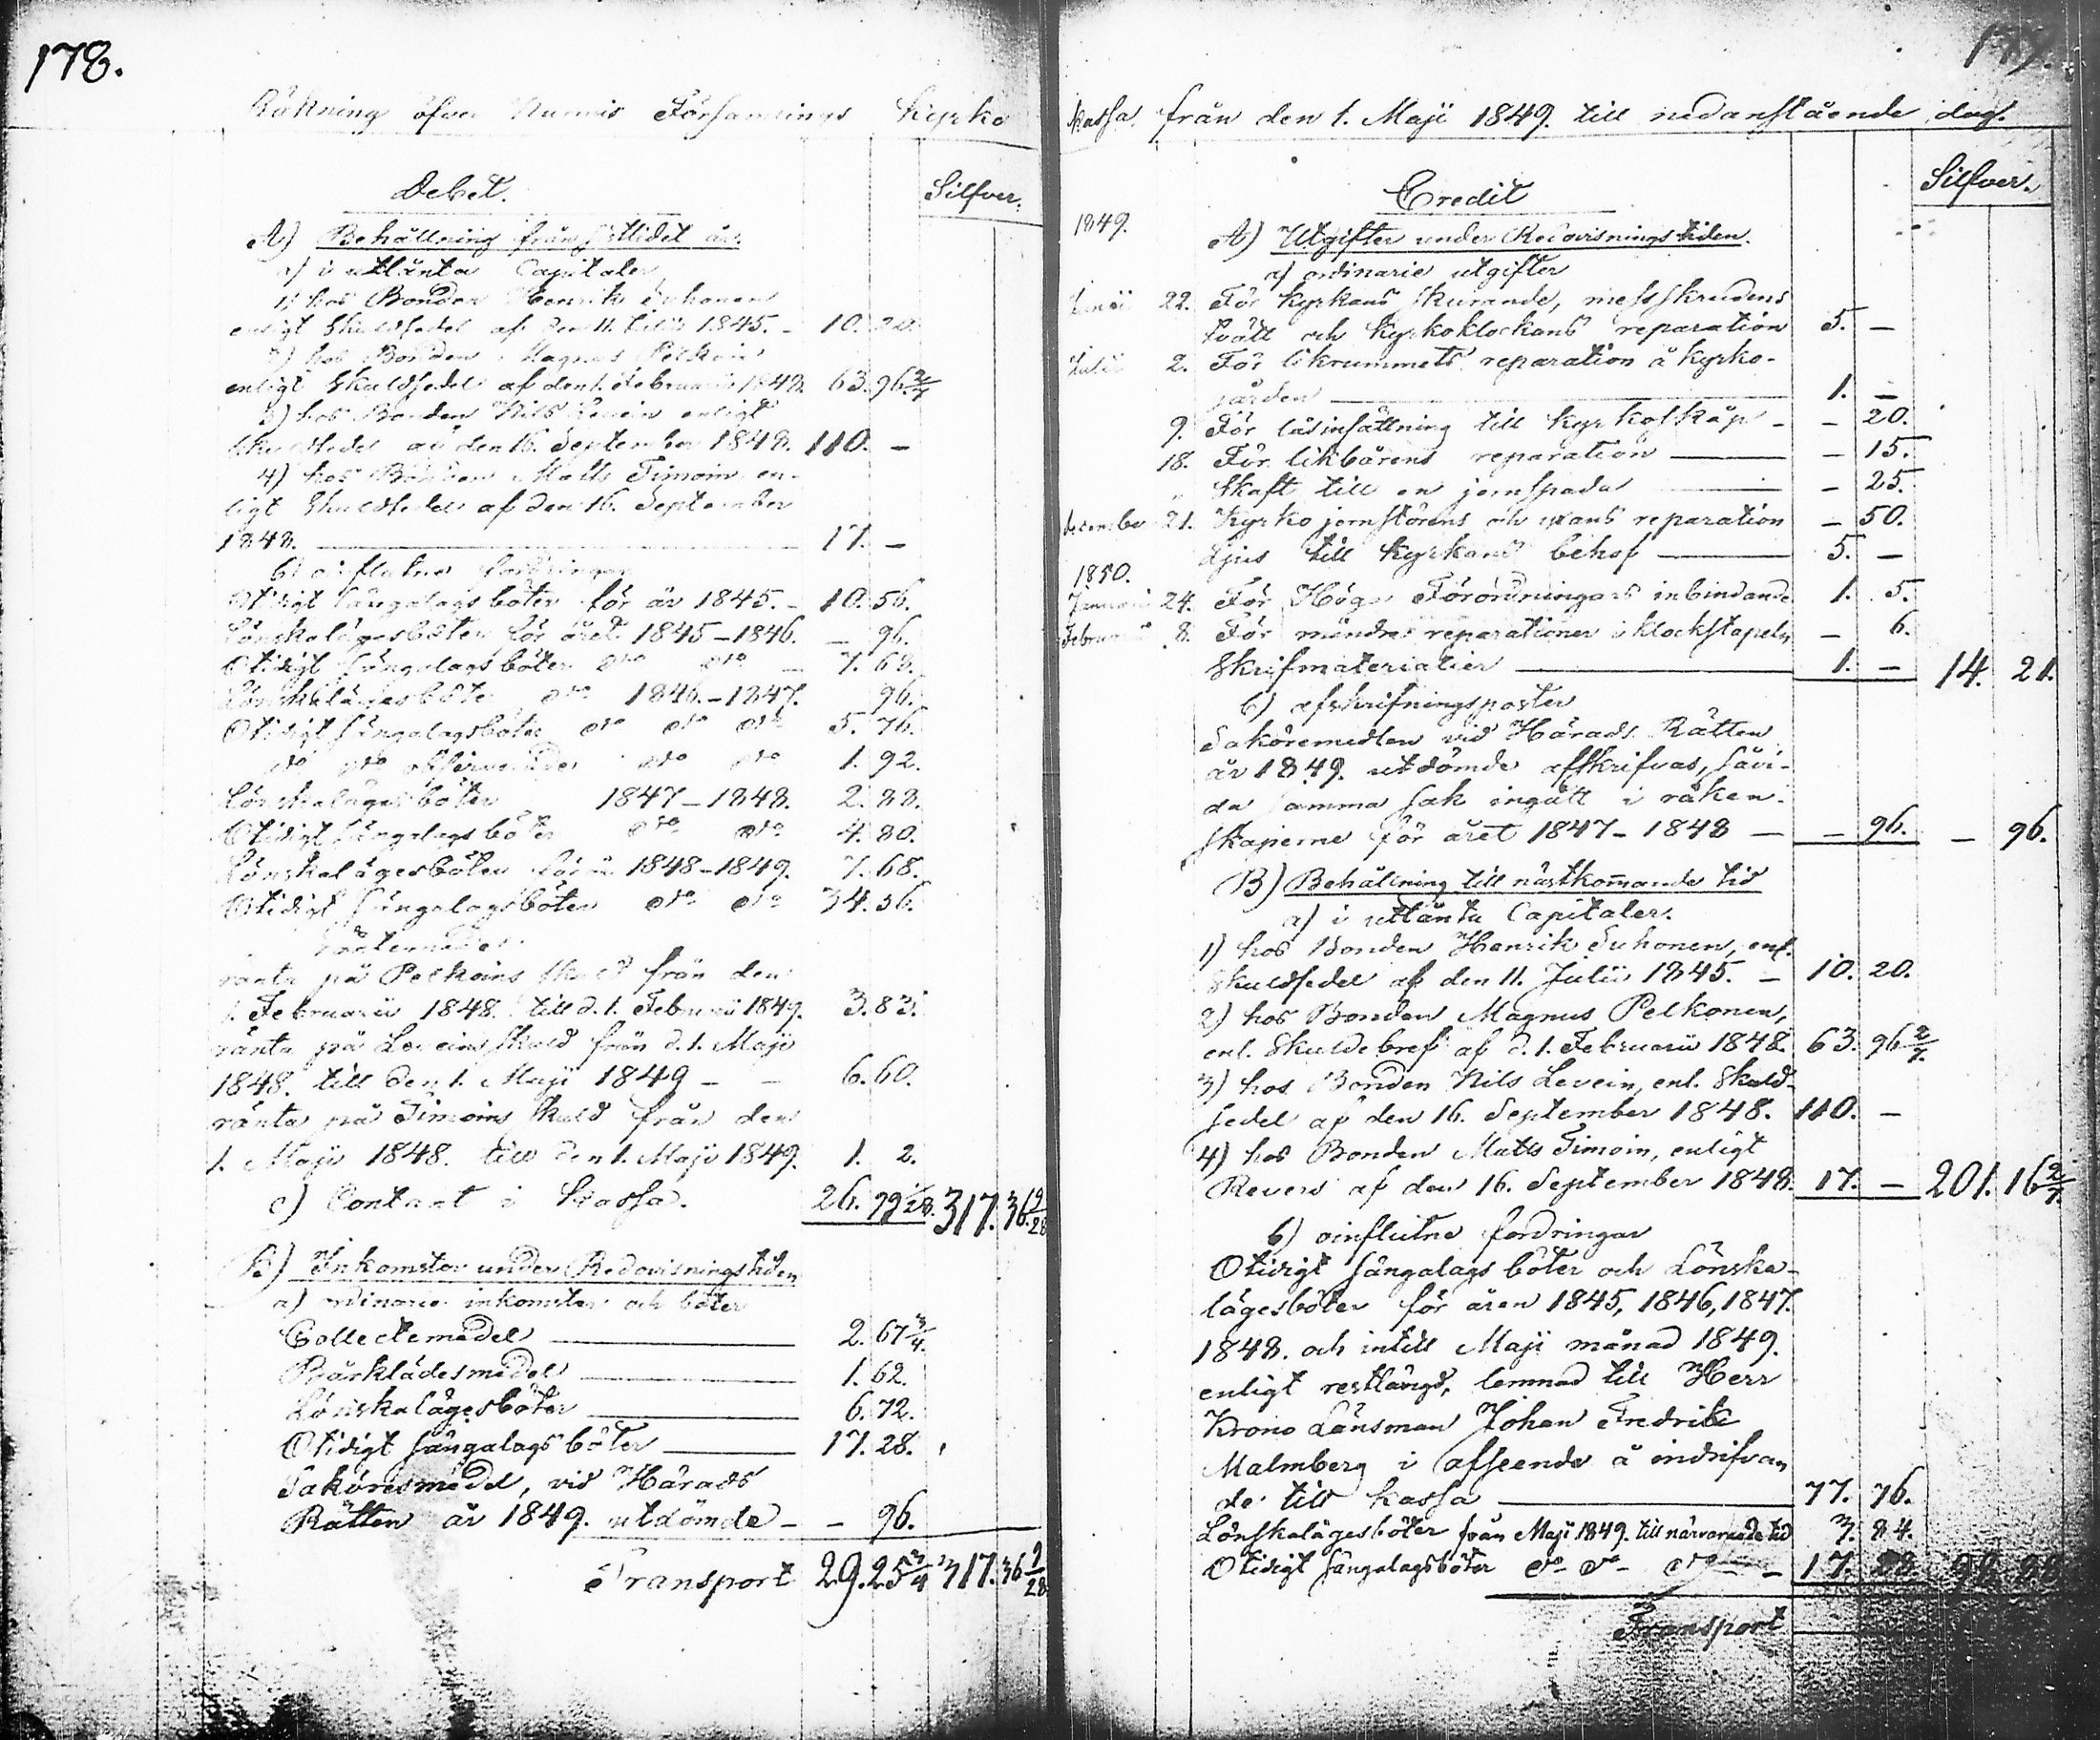 178.
Räkning öfver Nurmis Församlings Kyrko
Debet.
Silfver.
A) Behållning från
a) i utlånta Capitaler
1) hos Bonden Henrik Suhonen
enligt Skuldsedel af den 11. Julii 1845. - 10. 20.
2) hos Bonden Magnus Pelkoin
enligt Skuldsedel af den 1. Februarii 1848. 63. 96 2/7
3) hos Bonden Nils Levein enligt
Skuldsedel af den 16. September 1848. 110. -
4) hos Bonden Matts Timoin en-
ligt Skuldsedel af den 16. September
1848. 17. -
b) oinflutne fordringar
Otidigt sängalagsböter för år 1845. - 10. 56.
Lönskalägesböter för året 1845-1846. - 96.
Otidigt sängalagsböter d:o d:o - 7. 68.
Lönskalägesböter d:o 1846.-1847. 96.
Otidigt sängalagsböter d:o d:o d:o 5. 76.
d:o d:o d:o d:o 1. 92.
Lönskalägesböter 1847-1848. 2. 88.
Otidigt sängalagsböter d:o d:o 4. 80.
Lönskalägesböter för 1848-1849. 7. 68.
Otidigt sängalagsböter d:o d:o 34. 56.
Räntemedel
ränta på Pelkoins skuld från den
1. Februarii 1848. till d. 1. Februarii 1849. 3. 83.
ränta på Leveins skuld från d. 1. Maji
1848. till den 1. Maji 1849 - - 6. 60.
ränta på Timoins skuld från den
1. Maji 1848. till den 1. Maji 1849. 1. 2.
c) Contant i Kassa. 26. 317. 36 9/28
B) Inkomster under Redovisningstiden
a) ordinarie inkomster och böter
Collectemedel 2. 67 3/4.
Bårklädesmedel 1. 62.
Lönskalägesböter 6. 72.
Otidigt sängalagsböter 17. 28.
Saköresmedel, vid Härads
Rätten år 1849. utdömde - - 96.
Transport 29. 25 3/4 317. 36 9/28
179.
kassa från den 1. Maji 1849. till nedanstående dag.
Credit
Silfver.
1849.
A) Utgifter under Redovisningstiden.
a) ordinarie utgifter
Junii 22. För kyrkans skurande, messskrudens
tvätt och kyrkoklockans reparation 5. -
Julii 2. För likrummets reparation å kyrko-
gården 1. -
9. För låsinsättning till kyrkoskåp - - 20.
18. För likbårens reparation - 15.
" Skaft till en jernspada - 25.
December 21. Kyrko jernstörens och yxans reparation - 50.
Ljus till kyrkans behof 5. -
1850.
Januarii 24. För Höga Förordningars inbindande 1. 5.
Februarii 8. För mindre reparationer i klockstapeln - 6.
Skrifmaterialier 1. - 14. 21.
b) afskrifningsposter
Saköremedlen vid Härads Rätten
år 1849. utdömde afskrifvas, såvi-
da samma sak ingått i räken-
skaperne för året 1847-1848 - - 96. - 96.
B) Behållning till nästkommande tid
a) i utlånta Capitaler.
1) hos Bonden Henrik Suhonen, enl.
Skuldsedel af den 11. Julii 1845. - 10. 20.
2) hos Bonden Magnus Pelkonen,
enl. Skuldebref af d. 1. Februarii 1848. 63. 96 2/7.
3) hos Bonden Nils Levein, enl. Skuld-
sedel af den 16. September 1848. 110. -
4) hos Bonden Matts Timoin, enligt
Revers af den 16. September 1848. 17. - 201. 16 2/7.
b) oinflutne fordringar
Otidigt sängalags böter och Lönska-
lägesböter för åren 1845, 1846, 1847.
1848. och intill Maji månad 1849.
enligt restlängd, lemnad till Herr
Krono Länsman Johan Fredrik
Malmberg i afseende å indrifvan
de till kassa 77. 76.
Lönskalägesböter från Maji 1849. till närvarande tid 3. 84.
Otidigt sängalagsböter d:o d:o d:o - 17. 28. 98. 88.
Transport